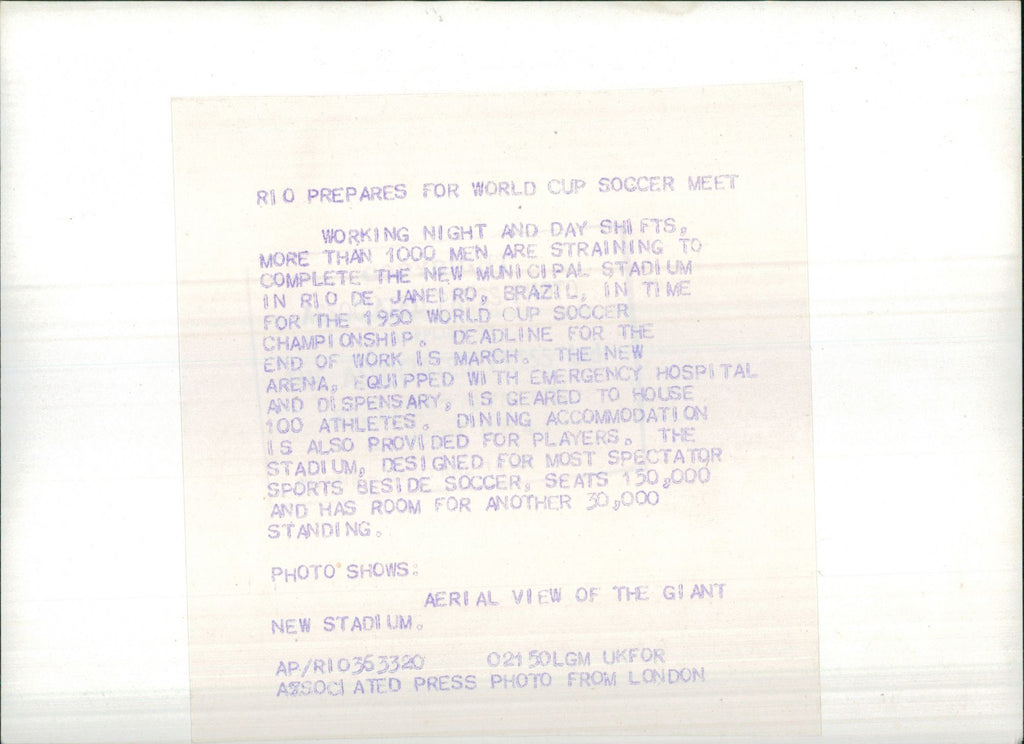 RIO PREPARES FOR WORLD CUP SOCCER MEET
WORKING NIGHT AND DAY SHIFTS,
MORE THAN 1000 MEN ARE STRAINING TO
COMPLETE THE NEW MUNICIPAL STADIUM
IN RIO DE JANEIRO, BRAZIL, IN TIME
FOR THE 1950 WORLD CUP SOCCER
CHAMPIONSHIP. DEADLINE FOR THE
END OF WORK IS MARCH. THE NEW
ARENA, EQUIPPED WITH EMERGENCY HOSPITAL
AND DISPENSARY, IS GEARED TO HOUSE
100 ATHLETES. DINING ACCOMMODATION
IS ALSO PROVIDED FOR PLAYERS. THE
STADIUM, DESIGNED FOR MOST SPECTATOR
SPORTS BESIDE SOCCER, SEATS 150,000
AND HAS ROOM FOR ANOTHER 30,000
STANDING.
PHOTO SHOWS:
AERIAL VIEW OF THE GIANT
NEW STADIUM.
AP/RIO363320 02150LGM UKFOR
ASSOCIATED PRESS PHOTO FROM LONDON